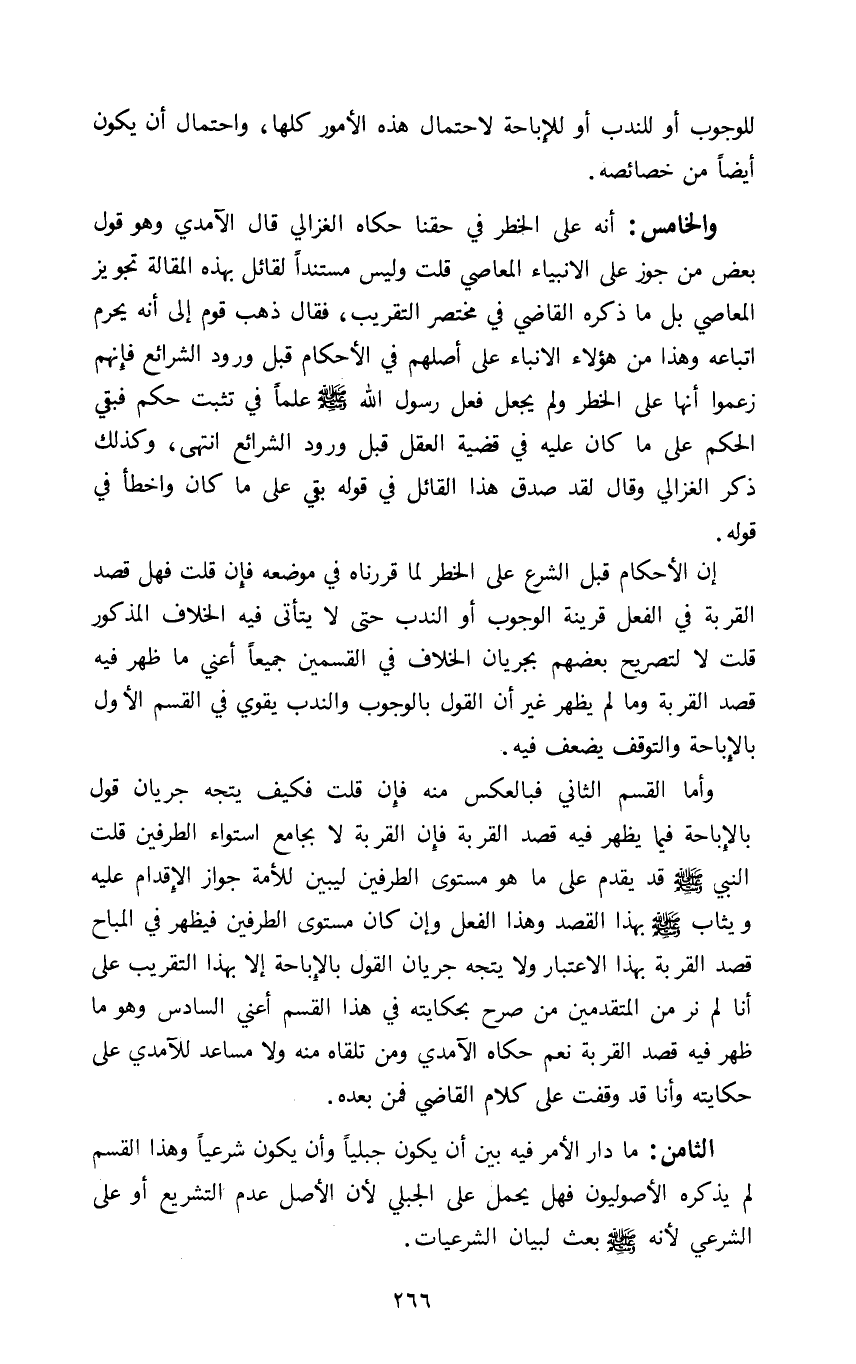 للوجوب أو للندب أو للإباحة لاحتمال هذه الأمور كلها، واحتمال أن يكون
أيضاً من خصائصه.
والخامس: أنه على الخطر في حقنا حكاه الغزالي قال الآمدي وهو قول
بعض من جوز على الانبياء المعاصي قلت وليس مستنداً لقائل بهذه المقالة تجويز
المعاصي بل ما ذكره القاضي في مختصر التقريب، فقال ذهب قوم إلى أنه يحرم
اتباعه وهذا من هؤلاء الانباء على أصلهم في الأحكام قبل ورود الشرائع فإنهم
زعموا أنها على الخطر ولم يجعل فعل رسول الله ﷺ علماً في تثبت حكم فبقي
الحكم على ما كان عليه في قضية العقل قبل ورود الشرائع انتهى، وكذلك
ذكر الغزالي وقال لقد صدق هذا القائل في قوله بقي على ما كان واخطأ في
قوله.
إن الأحكام قبل الشرع على الخطر لما قررناه في موضعه فإن قلت فهل قصد
القربة في الفعل قرينة الوجوب أو الندب حتى لا يتأتى فيه الخلاف المذكور
قلت لا لتصريح بعضهم بجريان الخلاف في القسمين جميعاً أعني ما ظهر فيه
قصد القربة وما لم يظهر غير أن القول بالوجوب والندب يقوي في القسم الأول
بالإباحة والتوقف يضعف فيه.
وأما القسم الثاني فبالعكس منه فإن قلت فكيف يتجه جريان قول
بالإباحة فيما يظهر فيه قصد القربة فإن القربة لا بجامع استواء الطرفين قلت
النبي ﷺ قد يقدم على ما هو مستوى الطرفين ليبين للأمة جواز الإقدام عليه
ويثاب ﷺ بهذا القصد وهذا الفعل وإن كان مستوى الطرفين فيظهر في المباح
قصد القربة بهذا الاعتبار ولا يتجه جريان القول بالإباحة إلا بهذا التقريب على
أنا لم نر من المتقدمين من صرح بحكايته في هذا القسم أعني السادس وهو ما
ظهر فيه قصد القربة نعم حكاه الآمدي ومن تلقاه منه ولا مساعد للآمدي على
حكايته وأنا قد وقفت على كلام القاضي فمن بعده.
الثامن: ما دار الأمر فيه بين أن يكون جبلياً وأن يكون شرعياً وهذا القسم
لم يذكره الأصوليون فهل يحمل على الجبلي لأن الأصل عدم التشريع أو على
الشرعي لأنه ﷺ بعث لبيان الشرعيات.
٢٦٦